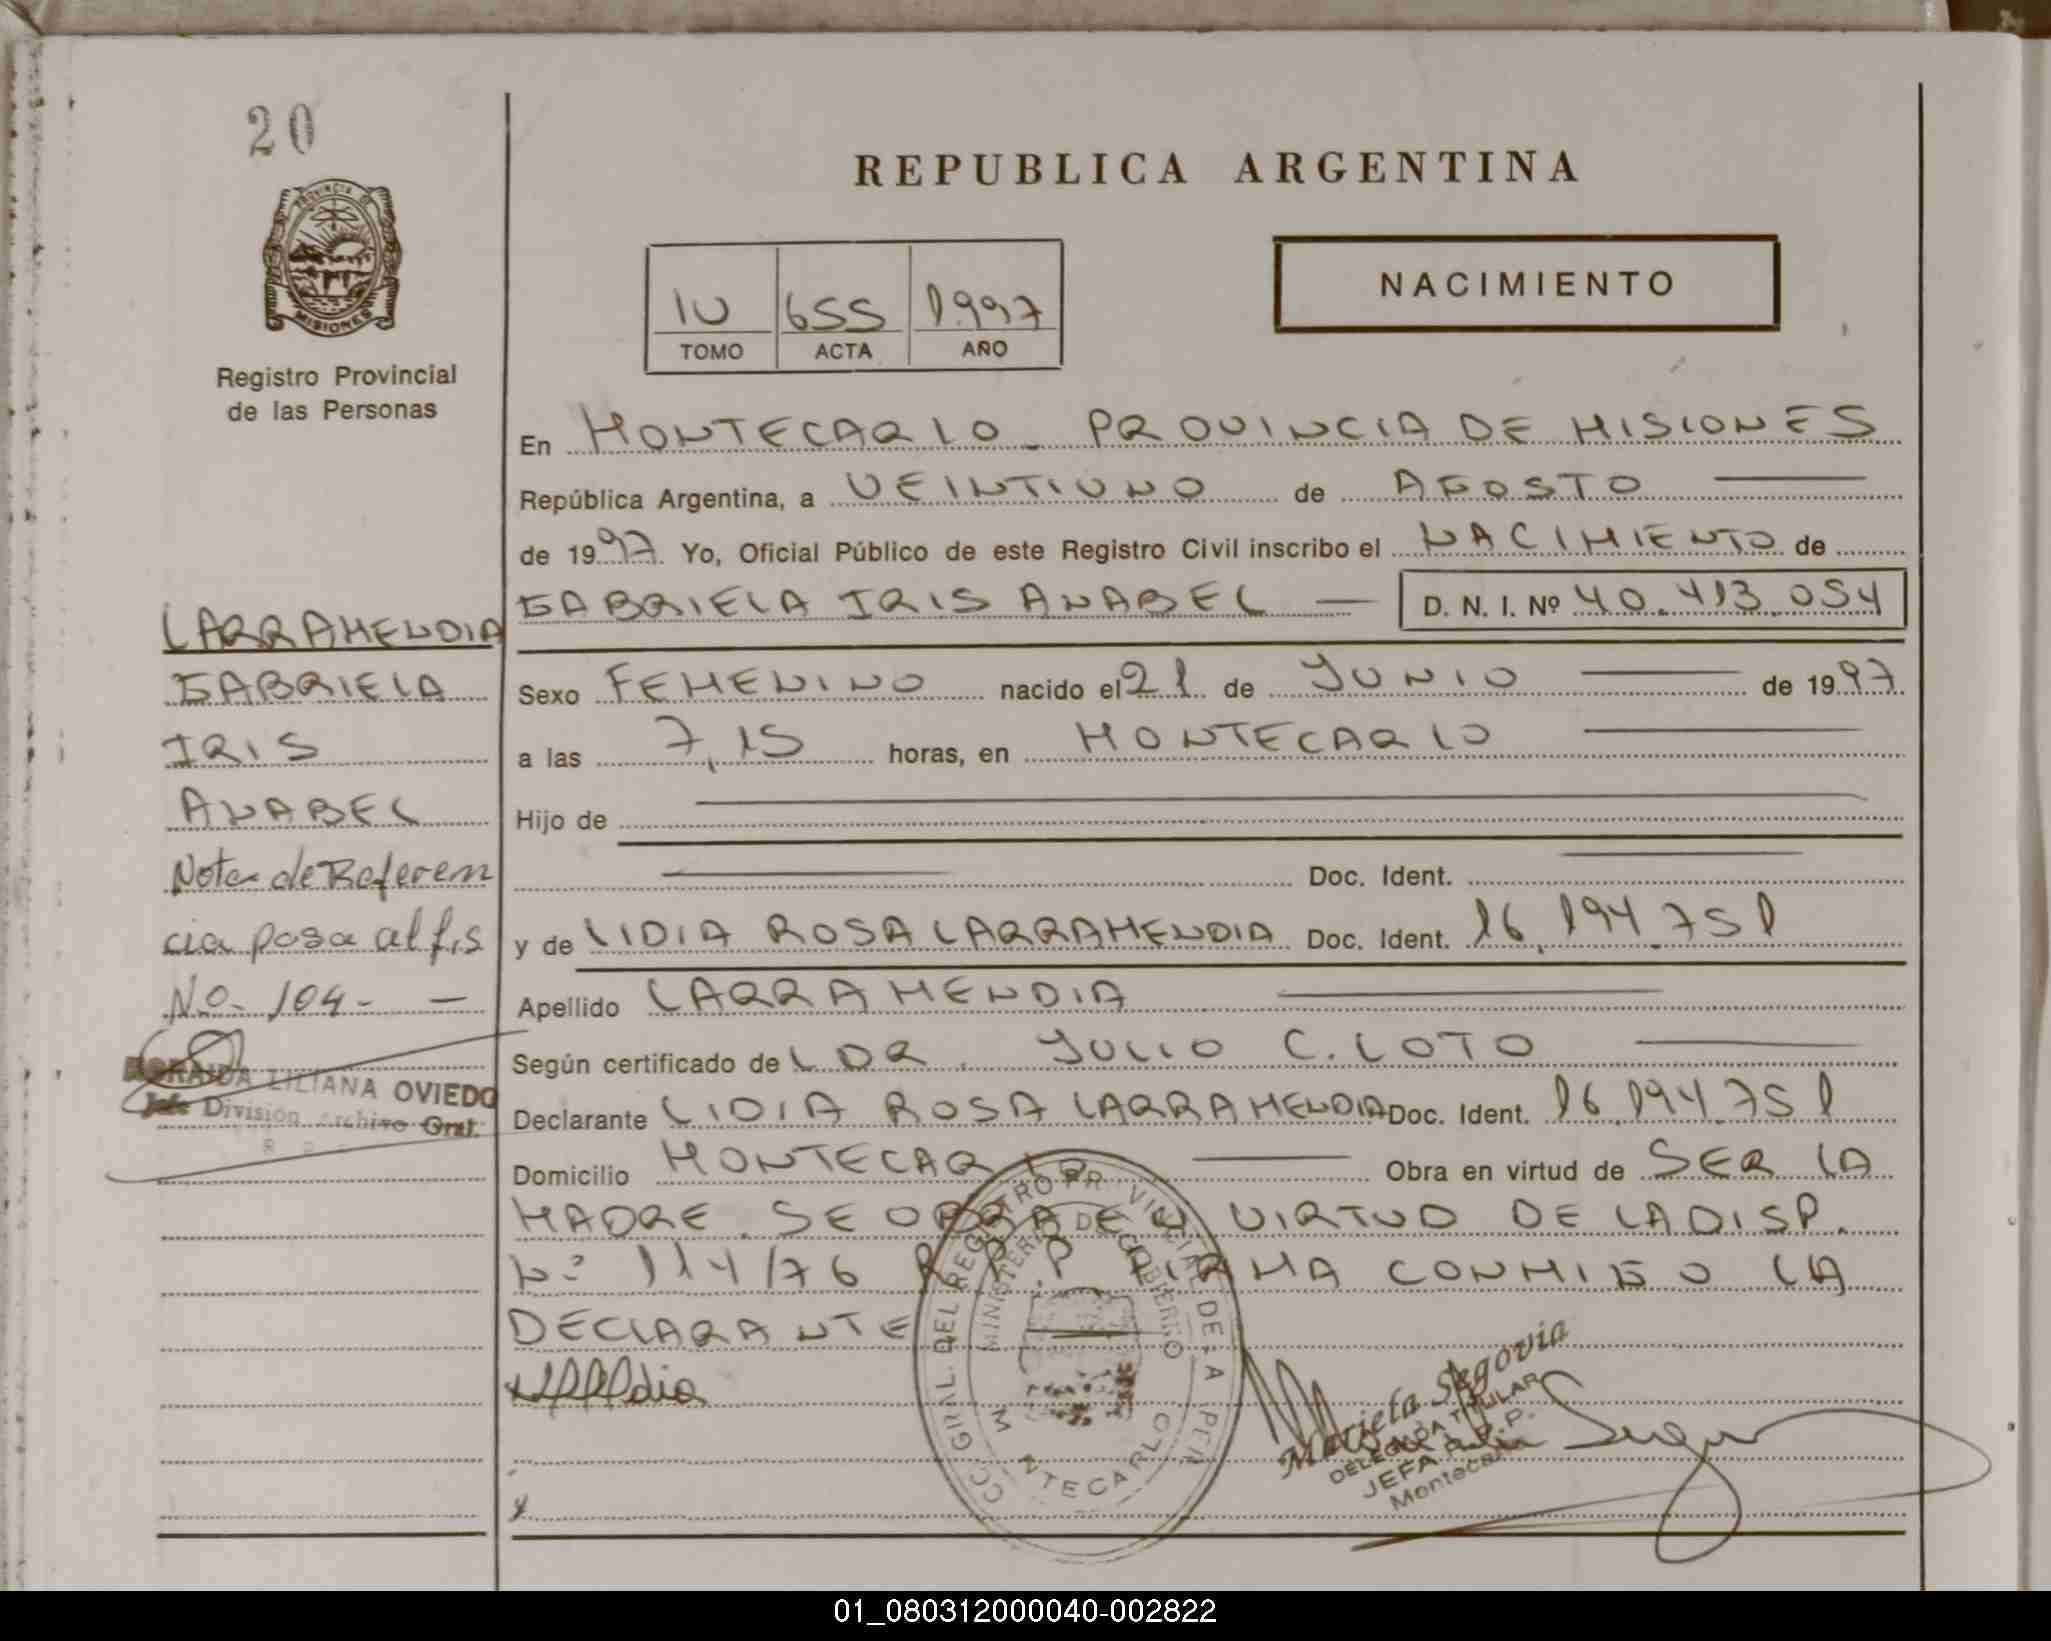 20
PROVINCIA DE
MISIONES
Registro Provincial
de las Personas
REPUBLICA ARGENTINA
IV 655 1997
TOMO ACTA AÑO
NACIMIENTO
En MONTECARLO - PROVINCIA DE MISIONES
República Argentina, a VEINTIUNO de AGOSTO
de 1997 Yo, Oficial Público de este Registro Civil inscribo el NACIMIENTO de
GABRIELA IRIS ANABEL — D. N. I. Nº 40.413.054
Sexo FEMENINO nacido el 21 de JUNIO de 1997
a las 7,15 horas, en MONTECARLO
Hijo de
Doc. Ident.
y de LIDIA ROSA LARRAMENDIA Doc. Ident. 16.194.751
Apellido LARRAMENDIA
Según certificado de L DR. JULIO C. LOTO
Declarante LIDIA ROSA LARRAMENDIA Doc. Ident. 16.194.751
Domicilio MONTECARLO Obra en virtud de SER LA
MADRE. SE OBRA EN VIRTUD DE LA DISP.
Nº 114/76 R.P.P. FIRMA CONMIGO LA
DECLARANTE
LARRAMENDIA
GABRIELA
IRIS
ANABEL
Nota de Referen
cia pasa al fis
No- 104- —
LILIANA OVIEDO
Jefe División Archivo Gral.
DEL REGISTRO PROVINCIAL DE LA
MINISTERIO DE GOBIERNO
MONTECARLO
Marieta Segovia
DELEGADA TITULAR
JEFA R.P.P.
Montecarlo
01_080312000040-002822